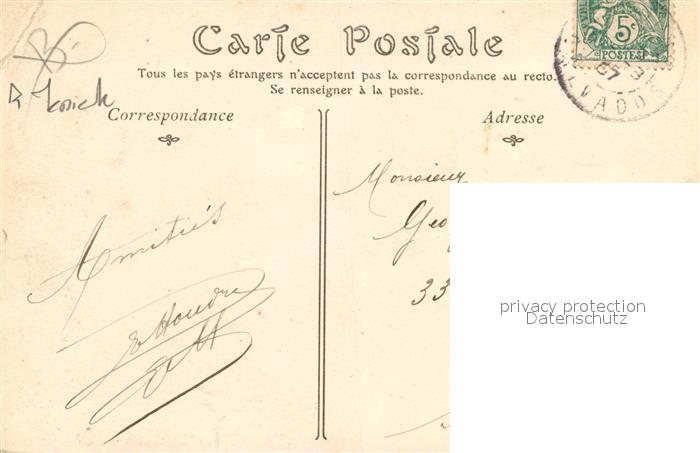 Carte Postale
Tous les pays étrangers n'acceptent pas la correspondance au recto.
Se renseigner à la poste.
Correspondance
Adresse
5c
POSTES
CALVADOS
07
Monsieur
Geo
33
Amitiés
privacy protection
Datenschutz